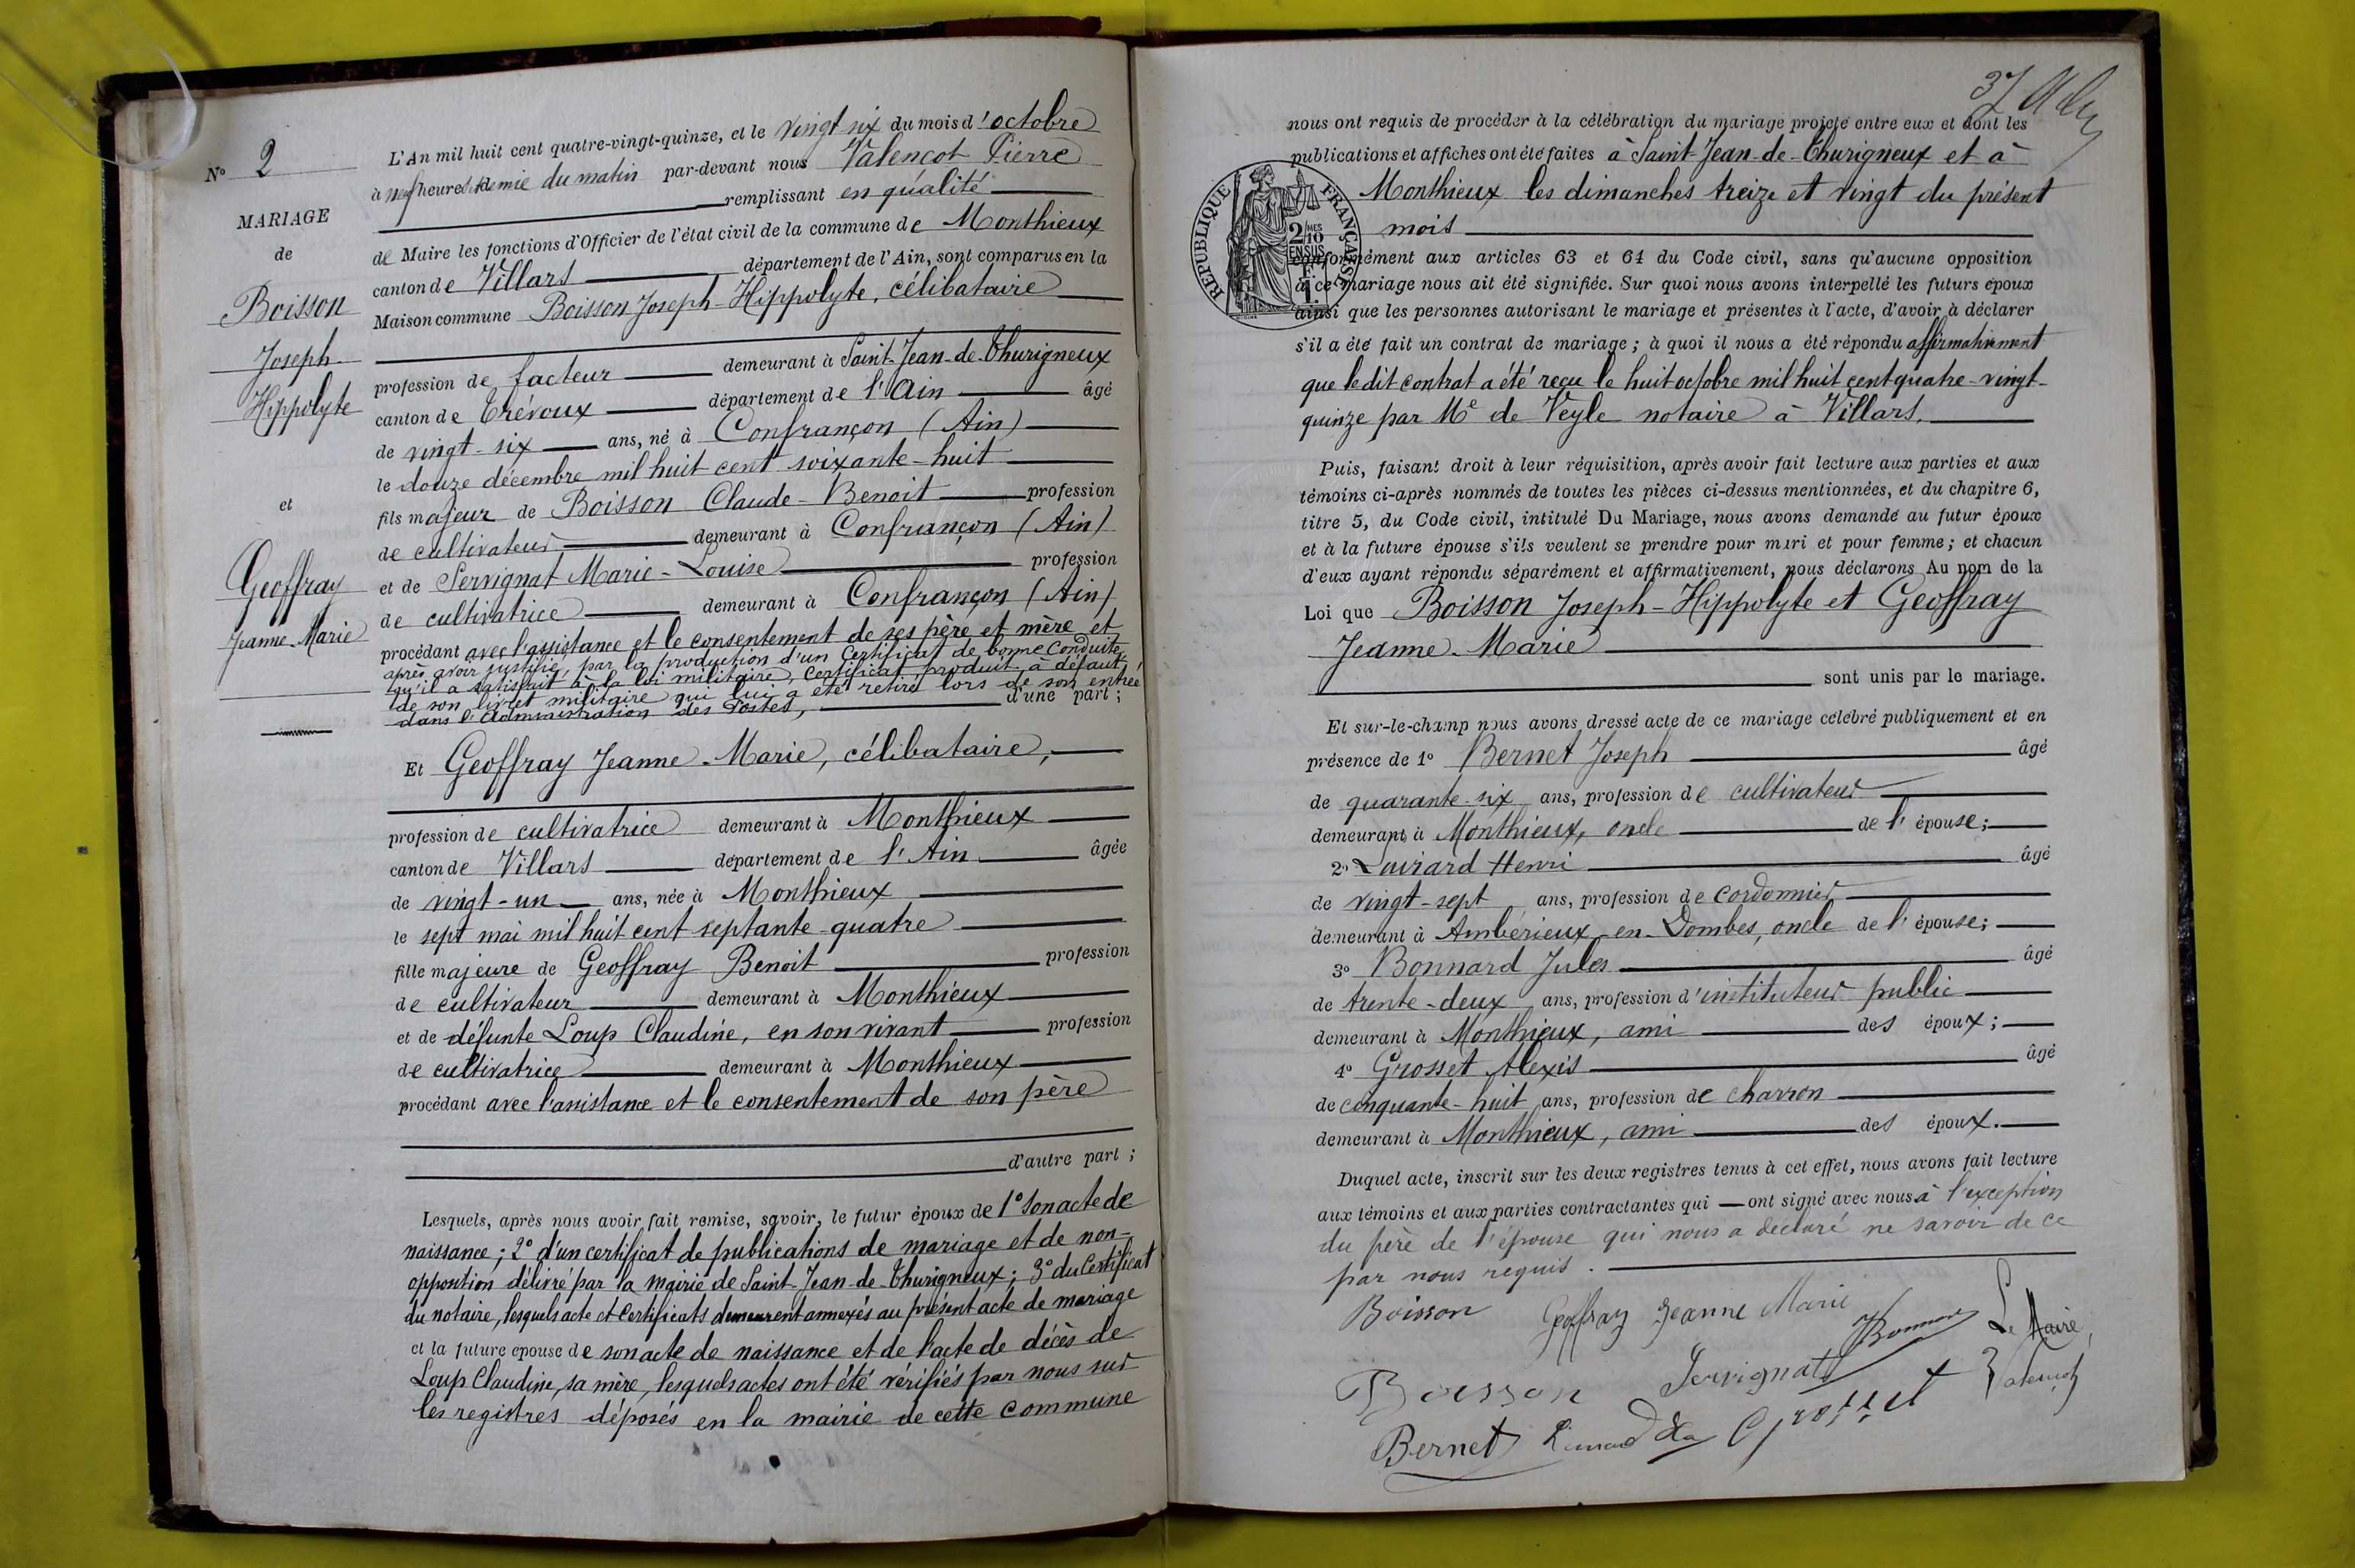 N° 2
MARIAGE
de
Boisson
Joseph
Hippolyte
et
Geoffray
Jeanne-Marie
L'An mil huit cent quatre-vingt-quinze, et le vingt six du mois d'octobre
à neuf heures et demie du matin par-devant nous Valençot Pierre
remplissant en qualité
de Maire les fonctions d'Officier de l'état civil de la commune de Monthieux
canton de Villars département de l'Ain, sont comparus en la
Maison commune Boisson Joseph-Hippolyte, célibataire
profession de facteur demeurant à Saint-Jean-de-Thurigneux
canton de Trévoux département de l'Ain âgé
de vingt-six ans, né à Confrançon (Ain)
le douze décembre mil huit cent soixante-huit
fils majeur de Boisson Claude-Benoit profession
de cultivateur demeurant à Confrançon (Ain)
et de Servignat Marie-Louise profession
de cultivatrice demeurant à Confrançon (Ain)
procédant avec l'assistance et le consentement de ses père et mère et
après avoir justifié, par la production d'un Certificat de bonne conduite,
qu'il a satisfait à la loi militaire, certificat produit à défaut
de son livret militaire qui lui a été retiré lors de son entrée
dans l'Administration des Postes, d'une part;
Et Geoffray Jeanne-Marie, célibataire,
profession de cultivatrice demeurant à Monthieux
canton de Villars département de l'Ain âgée
de vingt-un ans, née à Monthieux
le sept mai mil huit cent septante-quatre
fille majeure de Geoffray Benoit profession
de cultivateur demeurant à Monthieux
et de défunte Loup Claudine, en son vivant profession
de cultivatrice demeurant à Monthieux
procédant avec l'assistance et le consentement de son père
d'autre part;
Lesquels, après nous avoir fait remise, savoir, le futur époux de 1° son acte de
naissance; 2° d'un certificat de publications de mariage et de non-
opposition délivré par la mairie de Saint-Jean-de-Thurigneux; 3° du Certificat
du notaire, lesquels acte et certificats demeurent annexés au présent acte de mariage
et la future epouse de son acte de naissance et de l'acte de décès de
Loup Claudine, sa mère, lesquels actes ont été vérifiés par nous sur
les registres déposés en la mairie de cette commune
37
nous ont requis de procéder à la célébration du mariage projeté entre eux et dont les
publications et affiches ont été faites à Saint-Jean-de-Thurigneux et à
Monthieux les dimanches treize et vingt du présent
mois
RÉPUBLIQUE FRANÇAISE
2/10 MES
EN SUS
conformément aux articles 63 et 64 du Code civil, sans qu'aucune opposition
à ce mariage nous ait été signifiée. Sur quoi nous avons interpellé les futurs époux
ainsi que les personnes autorisant le mariage et présentes à l'acte, d'avoir à déclarer
s'il a été fait un contrat de mariage; à quoi il nous a été répondu affirmativement
que le dit contrat a été reçu le huit octobre mil huit cent quatre-vingt-
quinze par Me de Veyle notaire à Villars.
Puis, faisant droit à leur réquisition, après avoir fait lecture aux parties et aux
témoins ci-après nommés de toutes les pièces ci-dessus mentionnées, et du chapitre 6,
titre 5, du Code civil, intitulé Du Mariage, nous avons demandé au futur époux
et à la future épouse s'ils veulent se prendre pour mari et pour femme; et chacun
d'eux ayant répondu séparément et affirmativement, nous déclarons Au nom de la
Loi que Boisson Joseph-Hippolyte et Geoffray
Jeanne-Marie
sont unis par le mariage.
Et sur-le-champ nous avons dressé acte de ce mariage célébré publiquement et en
présence de 1° Bernet Joseph âgé
de quarante-six ans, profession de cultivateur
demeurant à Monthieux, oncle de l'épouse;
2° Luirard Henri âgé
de vingt-sept ans, profession de cordonnier
demeurant à Ambérieux-en-Dombes, oncle de l'épouse;
3° Bonnard Jules âgé
de trente-deux ans, profession d'instituteur public
demeurant à Monthieux, ami des époux;
4° Grosset Alexis âgé
de cinquante-huit ans, profession de charron
demeurant à Monthieux, ami des époux.
Duquel acte, inscrit sur les deux registres tenus à cet effet, nous avons fait lecture
aux témoins et aux parties contractantes qui ont signé avec nous à l'exception
du père de l'épouse qui nous a déclaré ne savoir de ce
par nous requis.
Boisson Geoffray Jeanne Marie
Bonnard Le Maire,
Boisson Servignat Valençot
Bernet Grosset